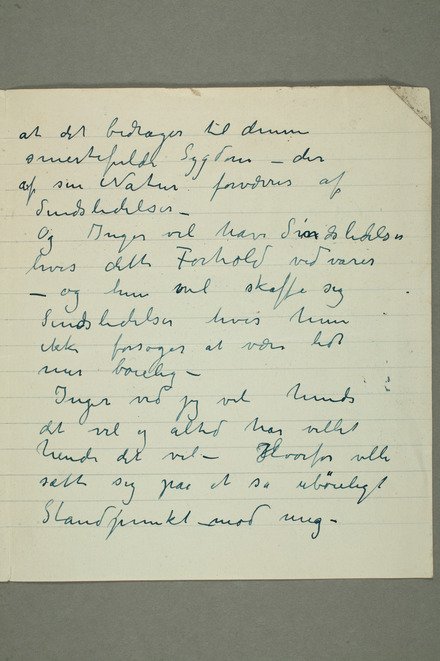 at det bedrager til denne
smertefulde Sygdom – der
af sin Natur forværres af
Sindslidelser –
Og Inger vil have Sindslidelser
hvis dette Forhold vedvarer
– og hun vil skaffe sig
Sindslidelser hvis hun
ikke forsøger at være lidt
mer bøielig –
Inger ved jeg vil hende
det vel og altid har villet
hende det vel – Hvorfor ville
sætte sig paa et så ubøieligt
Standpunkt mod mig –